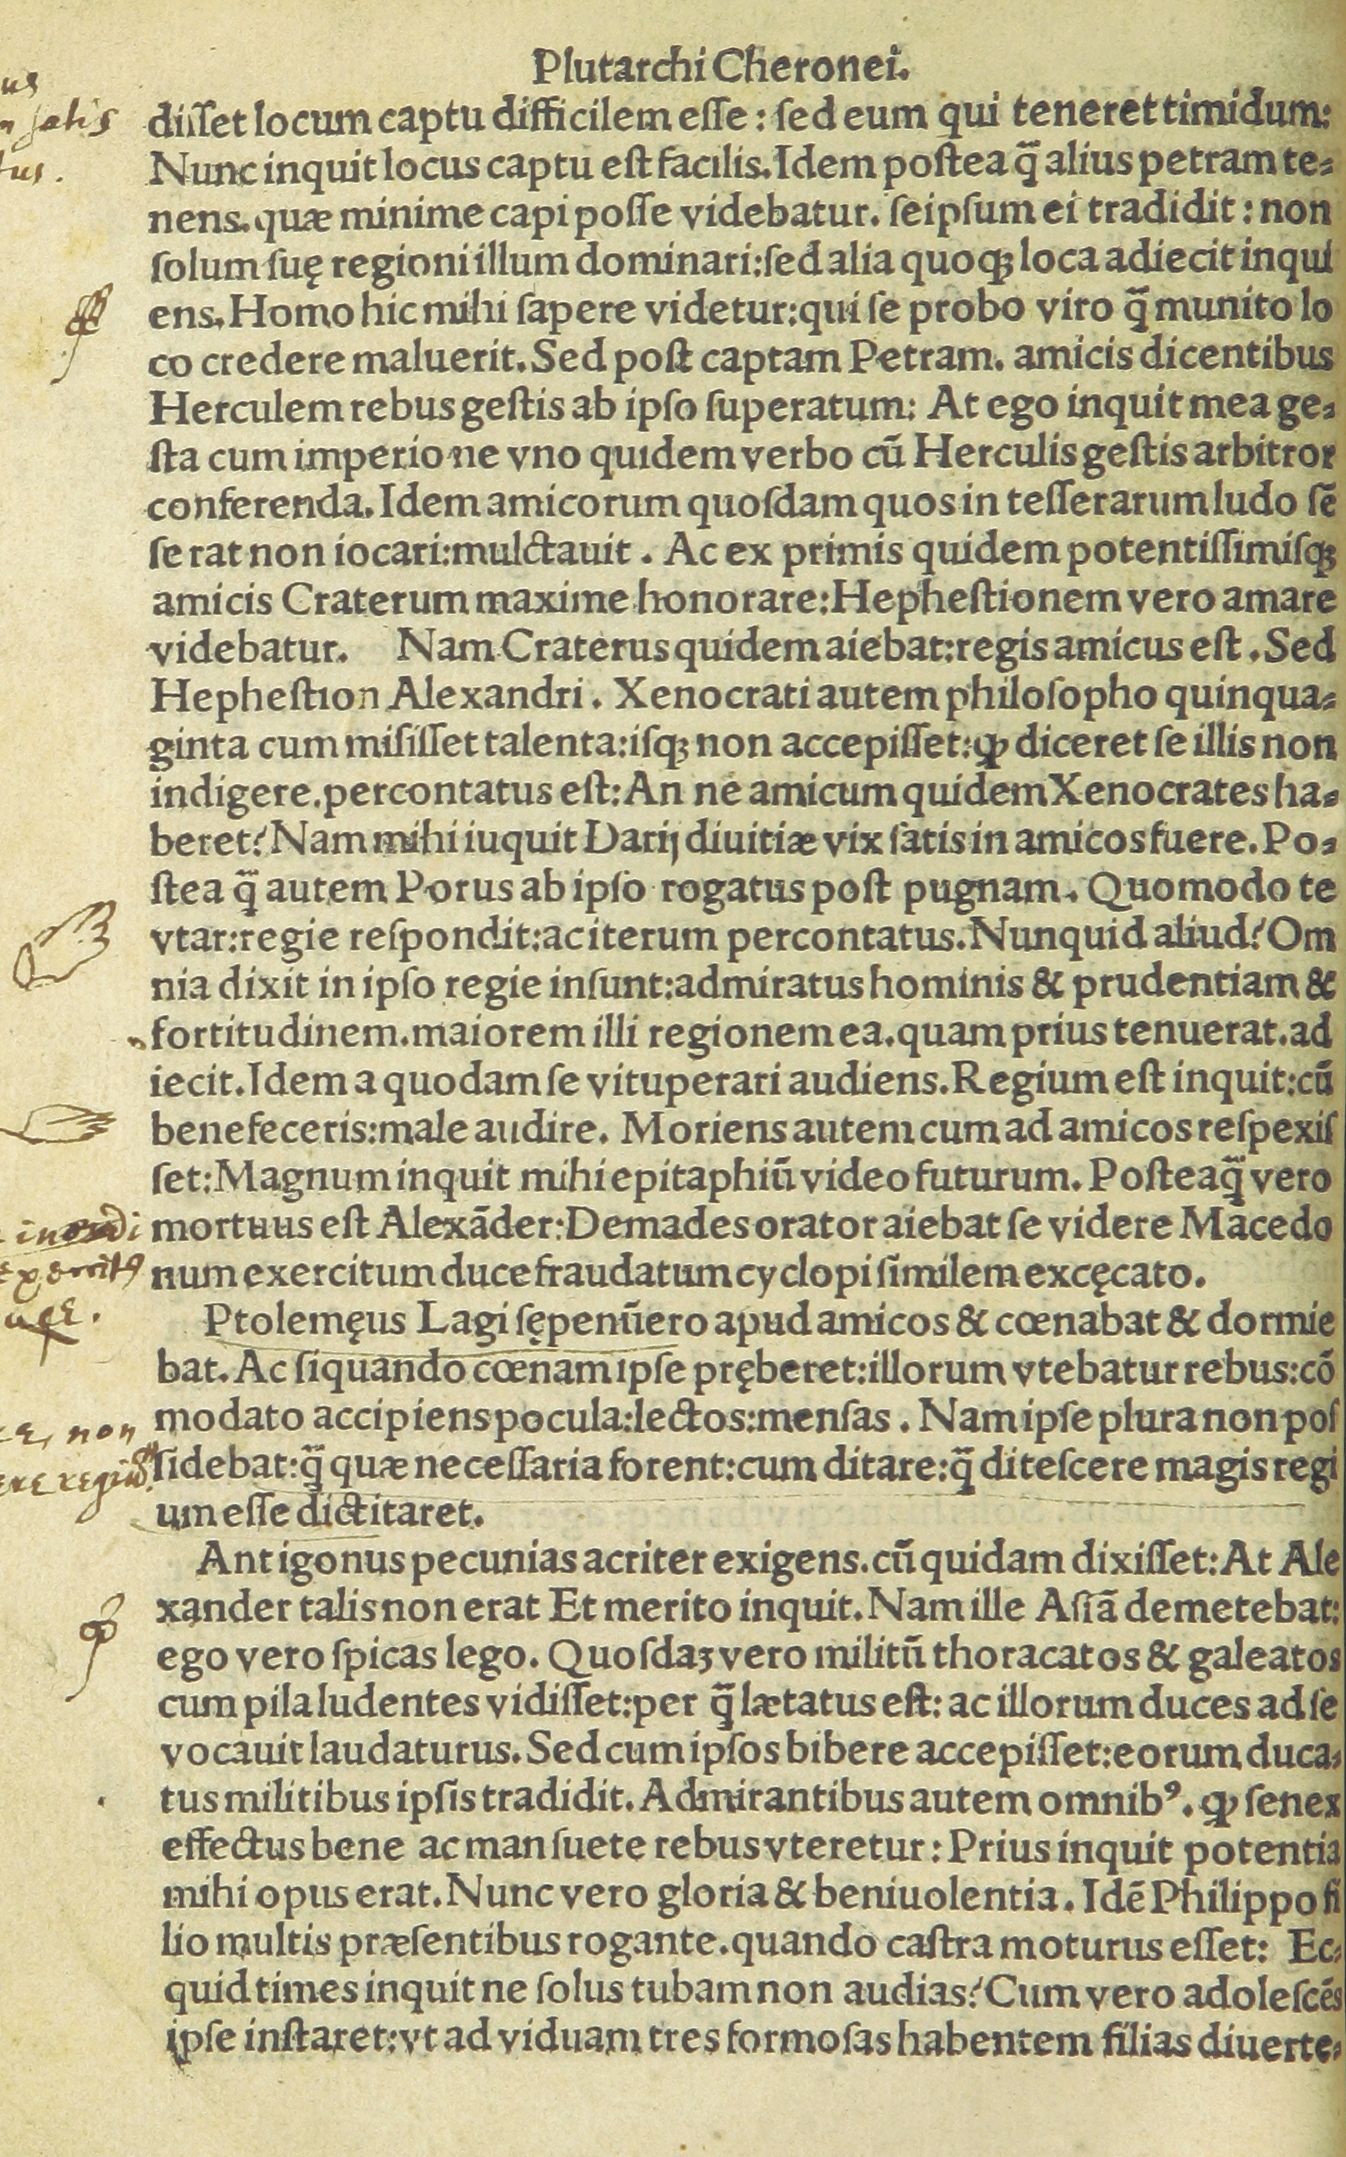 Plutarchi Cheronei.
diſſet locum captu difficilem eſſe: ſed eum qui teneret timidum:
Nunc inquit locus captu eſt facilis. Idem poſtea q̃ alius petram te-
nens. quæ minime capi poſſe videbatur. ſeipſum ei tradidit: non
ſolum ſuę regioni illum dominari: ſed alia quoqꝫ loca adiecit inqui
ens. Homo hic mihi ſapere videtur: qui ſe probo viro q̃ munito lo
co credere maluerit. Sed poſt captam Petram. amicis dicentibus
Herculem rebus geſtis ab ipſo ſuperatum: At ego inquit mea ge-
ſta cum imperio ne vno quidem verbo cū Herculis geſtis arbitror
conferenda. Idem amicorum quoſdam quos in teſſerarum ludo ſē
ſerat non iocari: mulctauit. Ac ex primis quidem potentiſſimiſqꝫ
amicis Craterum maxime honorare: Hepheſtionem vero amare
videbatur. Nam Craterus quidem aiebat: regis amicus eſt. Sed
Hepheſtion Alexandri. Xenocrati autem philoſopho quinqua-
ginta cum miſiſſet talenta: iſqꝫ non accepiſſet: ꝙ diceret ſe illis non
indigere. percontatus eſt: An ne amicum quidem Xenocrates ha-
beret? Nam mihi iuquit Darij diuitiæ vix ſatis in amicos fuere. Po-
ſtea q̃ autem Porus ab ipſo rogatus poſt pugnam. Quomodo te
vtar: regie reſpondit: ac iterum percontatus. Nunquid aliud? Om
nia dixit in ipſo regie inſunt: admiratus hominis & prudentiam &
fortitudinem. maiorem illi regionem ea. quam prius tenuerat. ad
iecit. Idem a quodam ſe vituperari audiens. Regium eſt inquit: cū
benefeceris: male audire. Moriens autem cum ad amicos reſpexiſ
ſet: Magnum inquit mihi epitaphiū video futurum. Poſteaq̃ vero
mortuus eſt Alexāder: Demades orator aiebat ſe videre Macedo
num exercitum duce fraudatum cyclopi ſimilem excęcato.
Ptolemęus Lagi ſępenūero apud amicos & cœnabat & dormie
bat. Ac ſiquando cœnam ipſe pręberet: illorum vtebatur rebus: cō
modato accipiens pocula: lectos: menſas. Nam ipſe plura non poſ
ſidebat: q̃ quæ neceſſaria forent: cum ditare: q̃ diteſcere magis regi
um eſſe dictitaret.
Antigonus pecunias acriter exigens. cū quidam dixiſſet: At Ale
xander talis non erat Et merito inquit. Nam ille Aſiā demetebat:
ego vero ſpicas lego. Quoſdaꝫ vero militū thoracatos & galeatos
cum pila ludentes vidiſſet: per q̃ lætatus eſt: ac illorum duces ad ſe
vocauit laudaturus. Sed cum ipſos bibere accepiſſet: eorum duca-
tus militibus ipſis tradidit. Admirantibus autem omnibꝰ. ꝙ ſenex
effectus bene ac manſuete rebus vteretur: Prius inquit potentia
mihi opus erat. Nunc vero gloria & beniuolentia. Idē Philippo fi
lio multis præſentibus rogante. quando caſtra moturus eſſet: Ec-
quid times inquit ne ſolus tubam non audias? Cum vero adoleſcēs
ipſe inſtaret: vt ad viduam tres formoſas habentem filias diuerte-